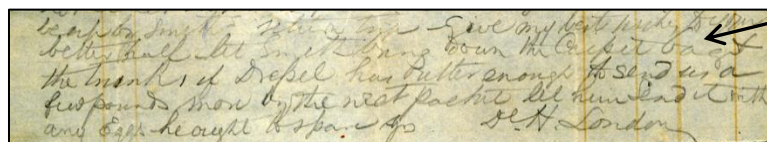 be up on Smith's return trip - Give my best wishes to your
better half let Smith bring down the Carpet bag &
the trunks if Diepel has butter enough to send us a
few pounds more by the next packet let him send it with
any Eggs he ought to spare &c De H. London